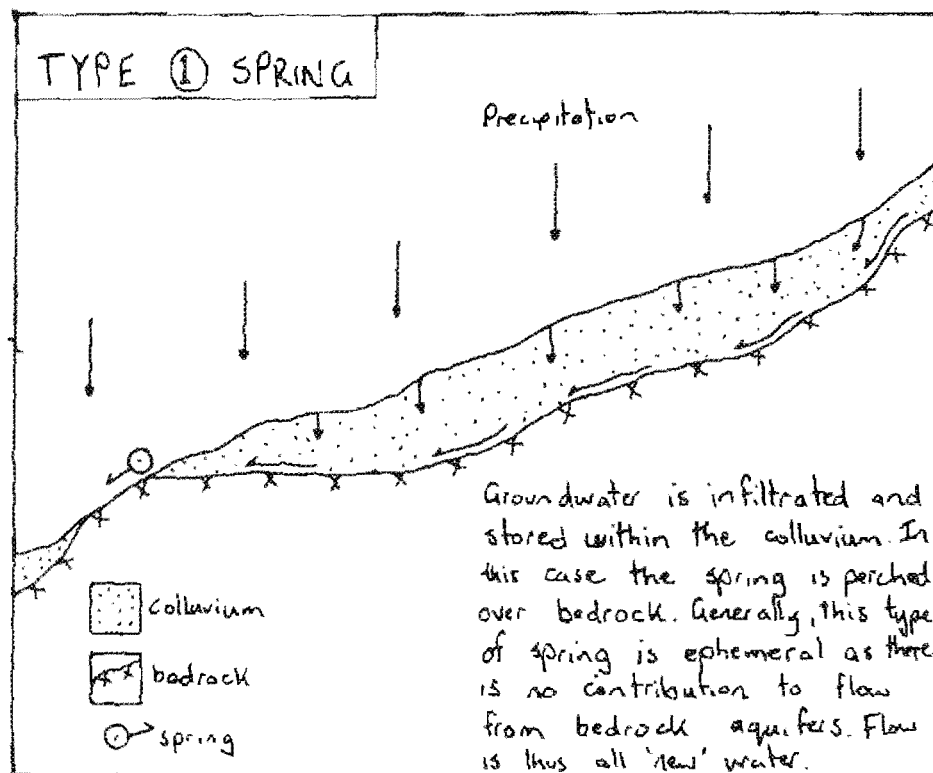 TYPE ① SPRING
Precipitation
Groundwater is infiltrated and
stored within the colluvium. In
this case the spring is perched
over bedrock. Generally, this type
of spring is ephemeral as there
is no contribution to flow
from bedrock aquifers. Flow
is thus all 'new' water.
colluvium
bedrock
spring